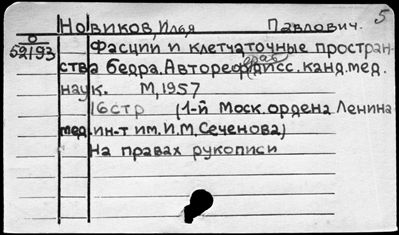 5
Новиков, Илья Павлович.
О
52193
Фасции и клетчаточные простран-
ства бедра. Автореф. дисс. канд. мед.
наук. М, 1957
16 стр (1-й Моск. ордена Ленина
мед. ин-т им. И.М. Сеченова)
На правах рукописи